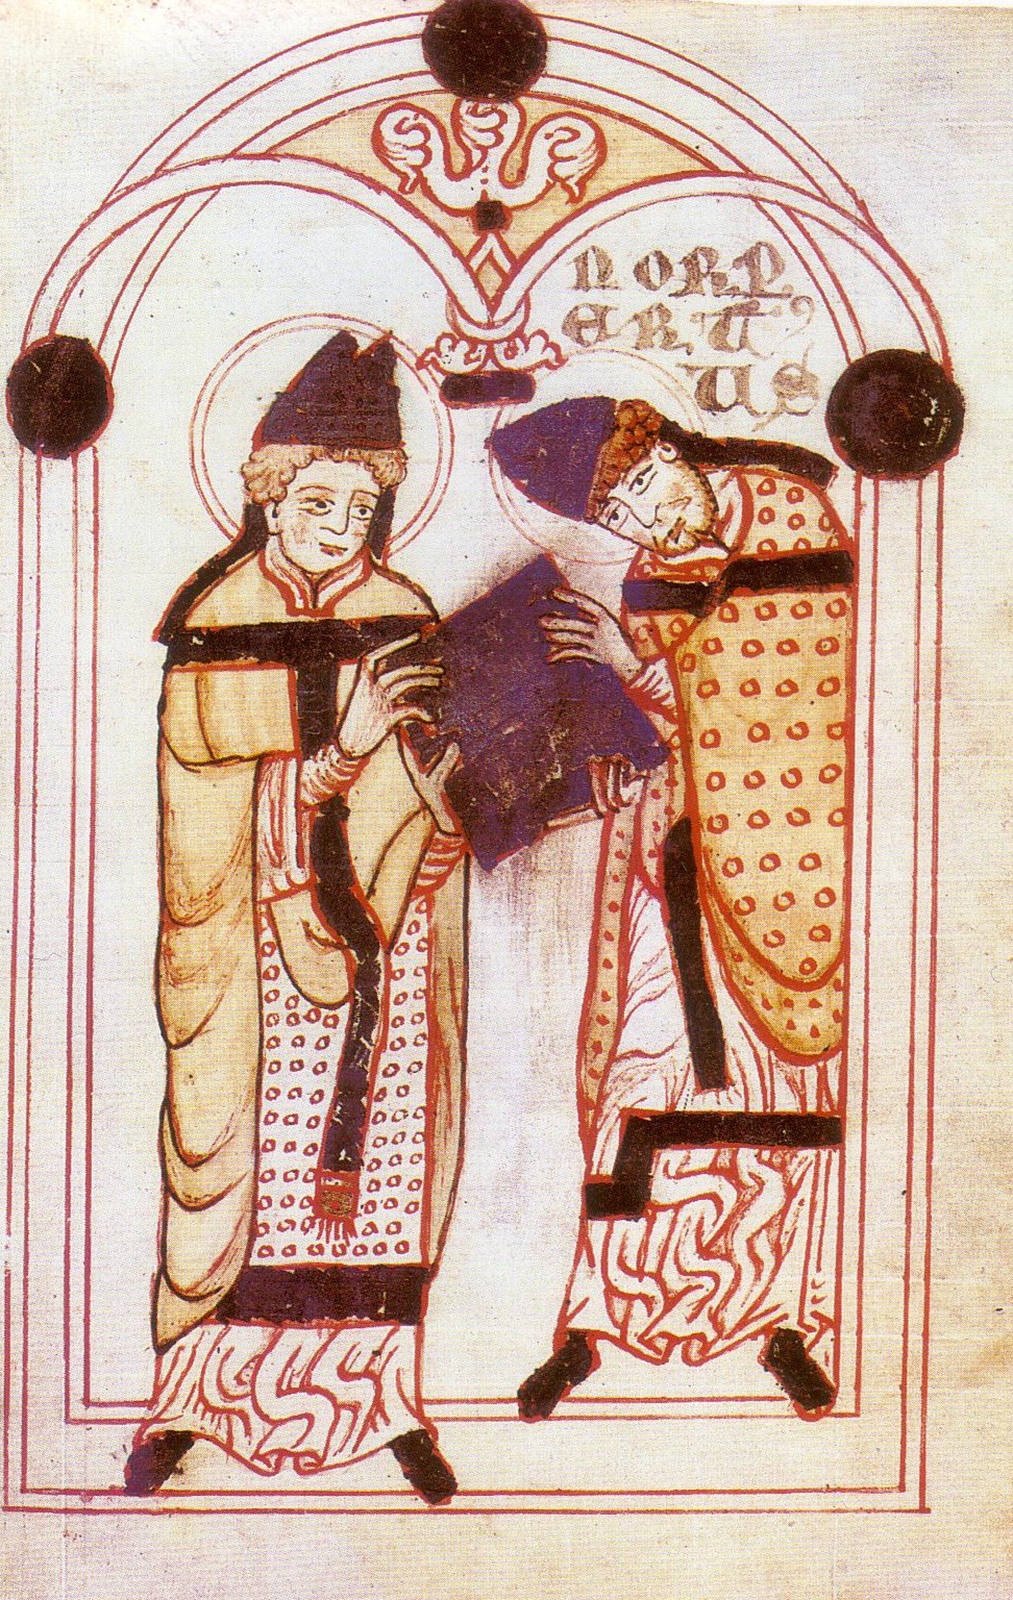 NORP
ERT'
US